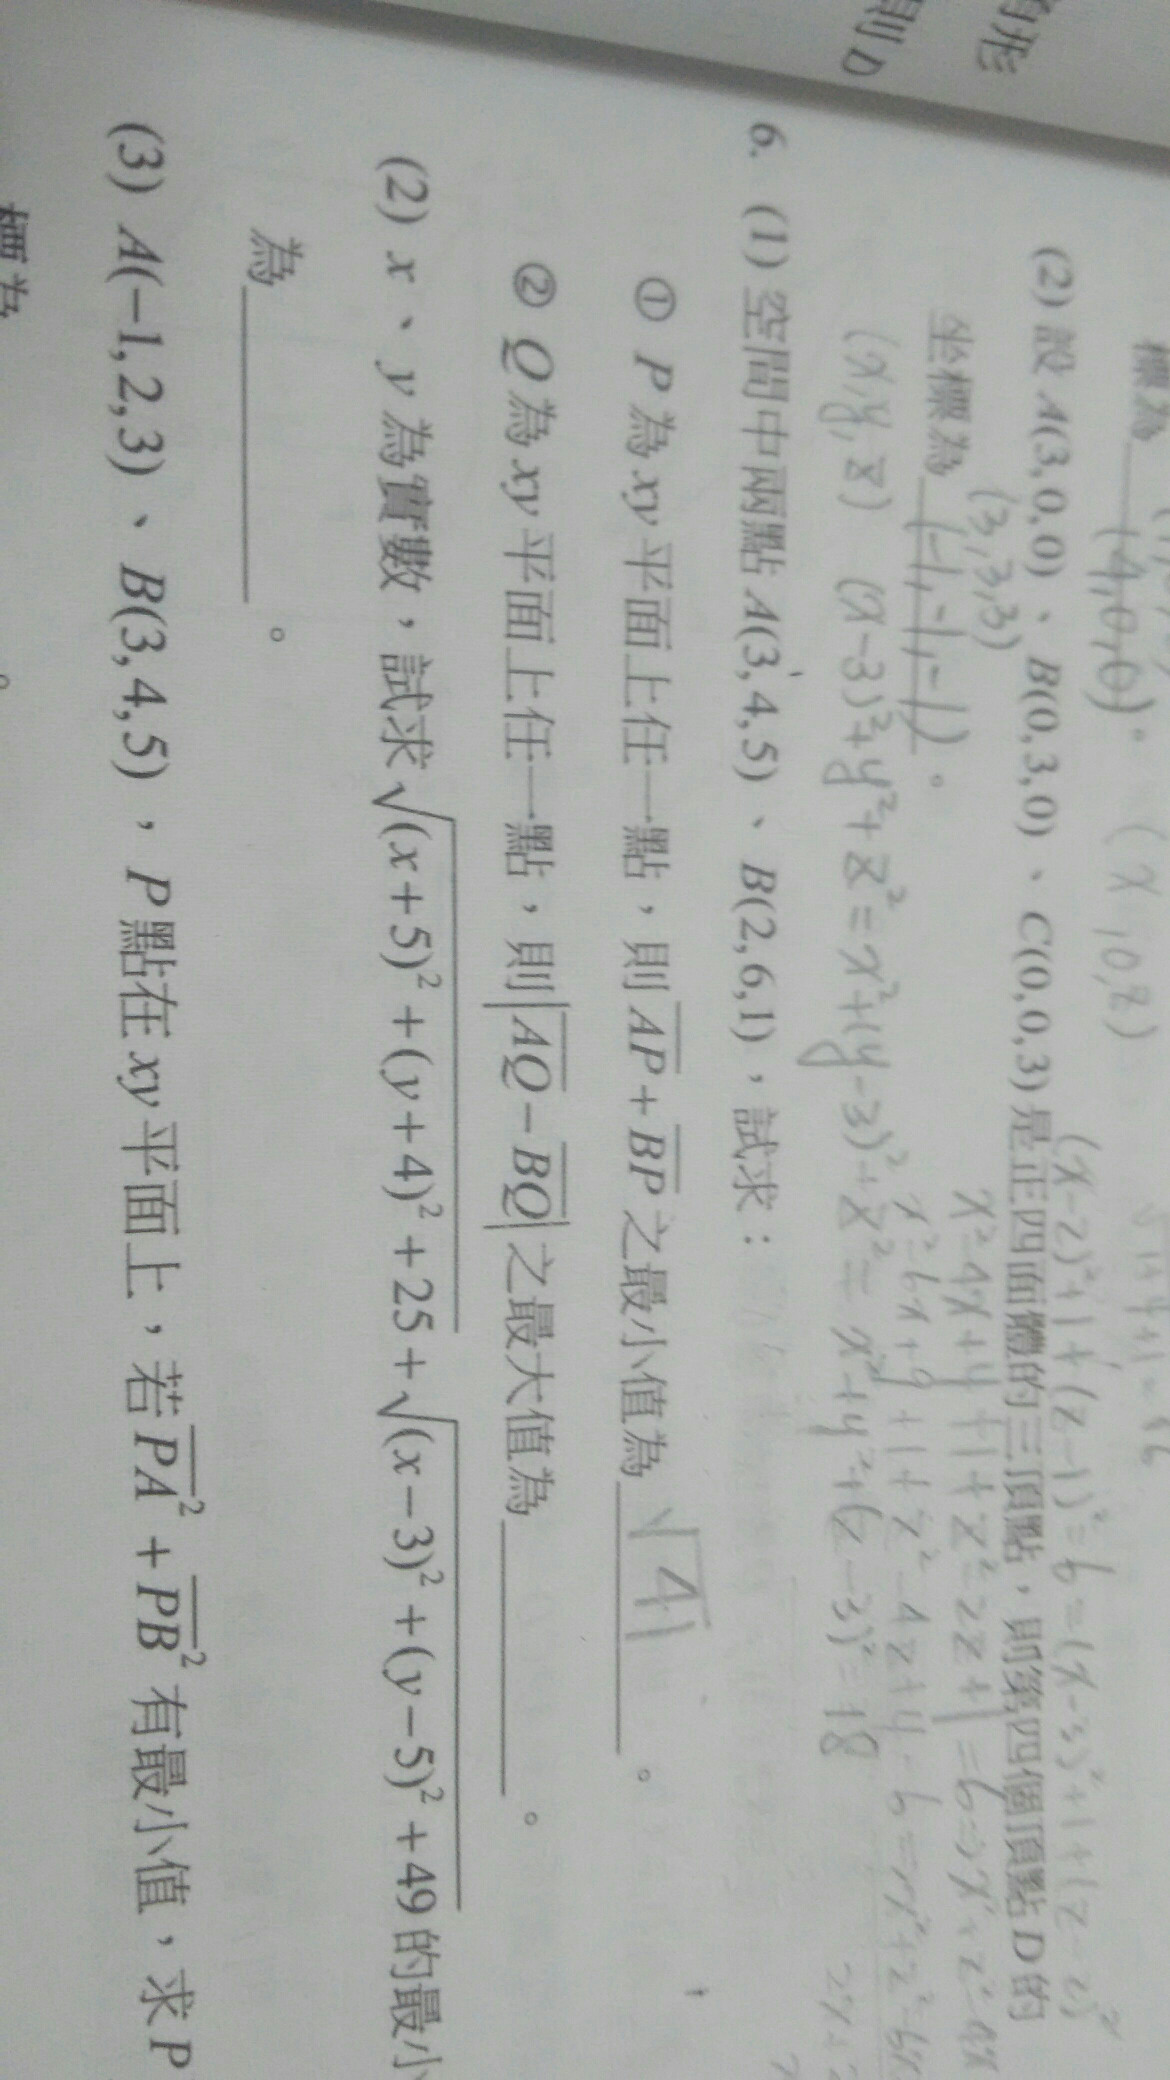 角形
則 D
標為 (4,0,0)。 (x,0,z)
(x-2)²+1+(z-1)²=6=(x-3)²+1+(z-2)²
(2) 設 A(3,0,0)、B(0,3,0)、C(0,0,3) 是正四面體的三頂點，則第四個頂點 D 的
x²-4x+4+1+z²-2z+1=6⇒x²+z²-4x
(3,3,3)
坐標為 (-1,-1,-1)。
x²-6x+9+1+z²-4z+4=6=x²+z²-6x
(x,y,z) (x-3)²+y²+z²=x²+(y-3)²+z²=x²+y²+(z-3)²=18
6. (1) 空間中兩點 A(3,4,5)、B(2,6,1)，試求：
① P 為 xy 平面上任一點，則 AP+BP 之最小值為 √41 。
② Q 為 xy 平面上任一點，則 |AQ-BQ| 之最大值為 。
(2) x、y 為實數，試求 √(x+5)²+(y+4)²+25+√(x-3)²+(y-5)²+49 的最小
為 。
(3) A(-1,2,3)、B(3,4,5)，P 點在 xy 平面上，若 PA²+PB² 有最小值，求 P
標為 。